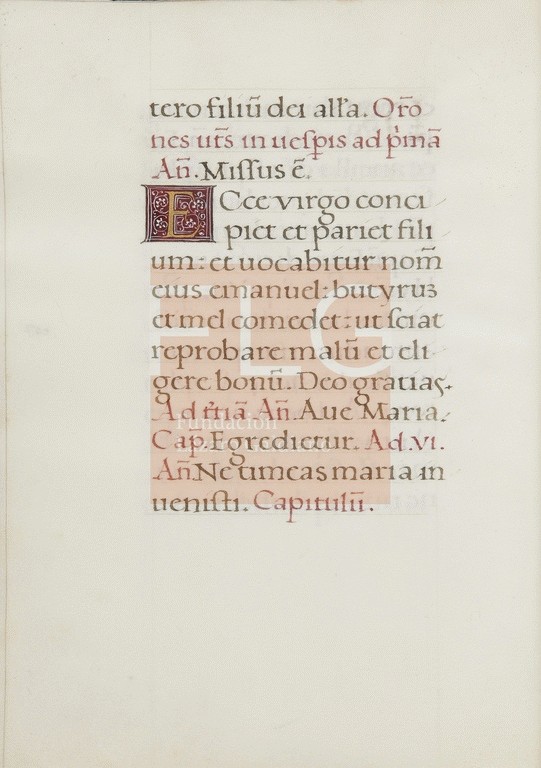 tero filiū dei all'a. Orō
nes ut̄s in uesp̄is ad p̄mā
An̄. Missus ē.
Ecce virgo conci
piet et pariet fili
um: et uocabitur nom̄
eius emanuel: butyrus
et mel comedet: ut sciat
reprobare malū et eli
gere bonū. Deo gratias.
Ad t̄tiā. An̄. Aue Maria.
Cap̄. Egredietur. Ad. vi.
An̄. Ne timeas maria in
uenisti. Capitulū.
FLG
Fundación